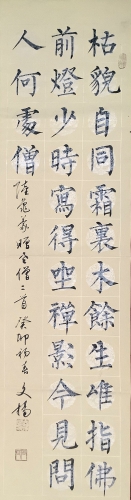 枯貌自同霜裏木餘生唯指佛
前燈少時寫得坐禪影今見問
人何處僧
陸龜蒙贈老僧二首癸卯初春文楊